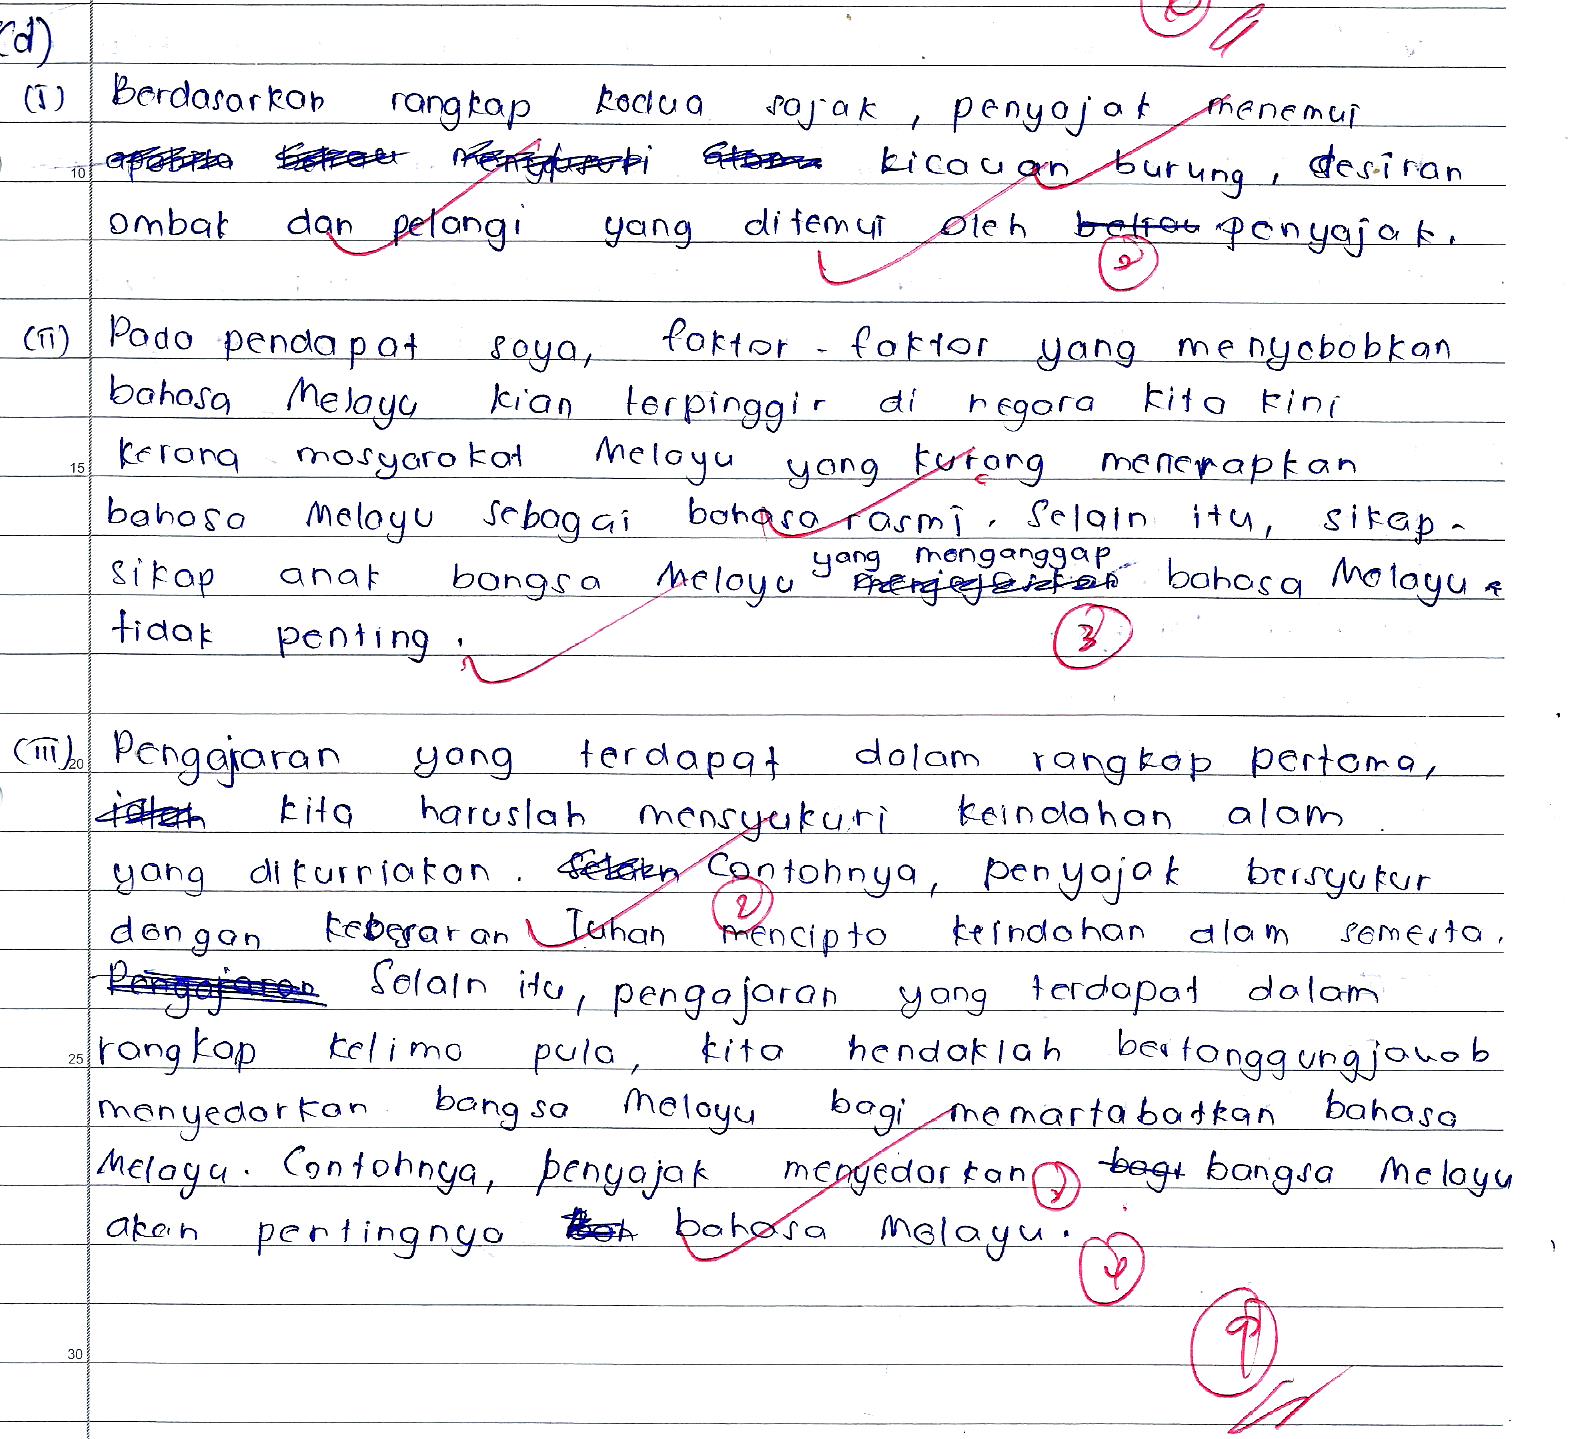 (d)
(i) Berdasarkan rangkap kedua sajak, penyajak menemui
10 kicauan burung, desiran
ombak dan pelangi yang ditemui oleh penyajak.
2
(ii) Pada pendapat saya, faktor-faktor yang menyebabkan
bahasa Melayu kian terpinggir di negara kita kini
15 kerana masyarakat Melayu yang kurang menerapkan
bahasa Melayu sebagai bahasa rasmi. Selain itu, sikap-
yang menganggap
sikap anak bangsa Melayu bahasa Melayu
tidak penting.
3
(iii) 20 Pengajaran yang terdapat dalam rangkap pertama,
ialah kita haruslah mensyukuri keindahan alam
yang dikurniakan. Selain Contohnya, penyajak bersyukur
2
dengan kebesaran Tuhan mencipta keindahan alam semesta.
Pengajaran Selain itu, pengajaran yang terdapat dalam
25 rangkap kelima pula, kita hendaklah bertanggungjawab
menyedarkan bangsa Melayu bagi memartabatkan bahasa
Melayu. Contohnya, penyajak menyedarkan 2 bagi bangsa Melayu
akan pentingnya bahasa Melayu.
4
9
30